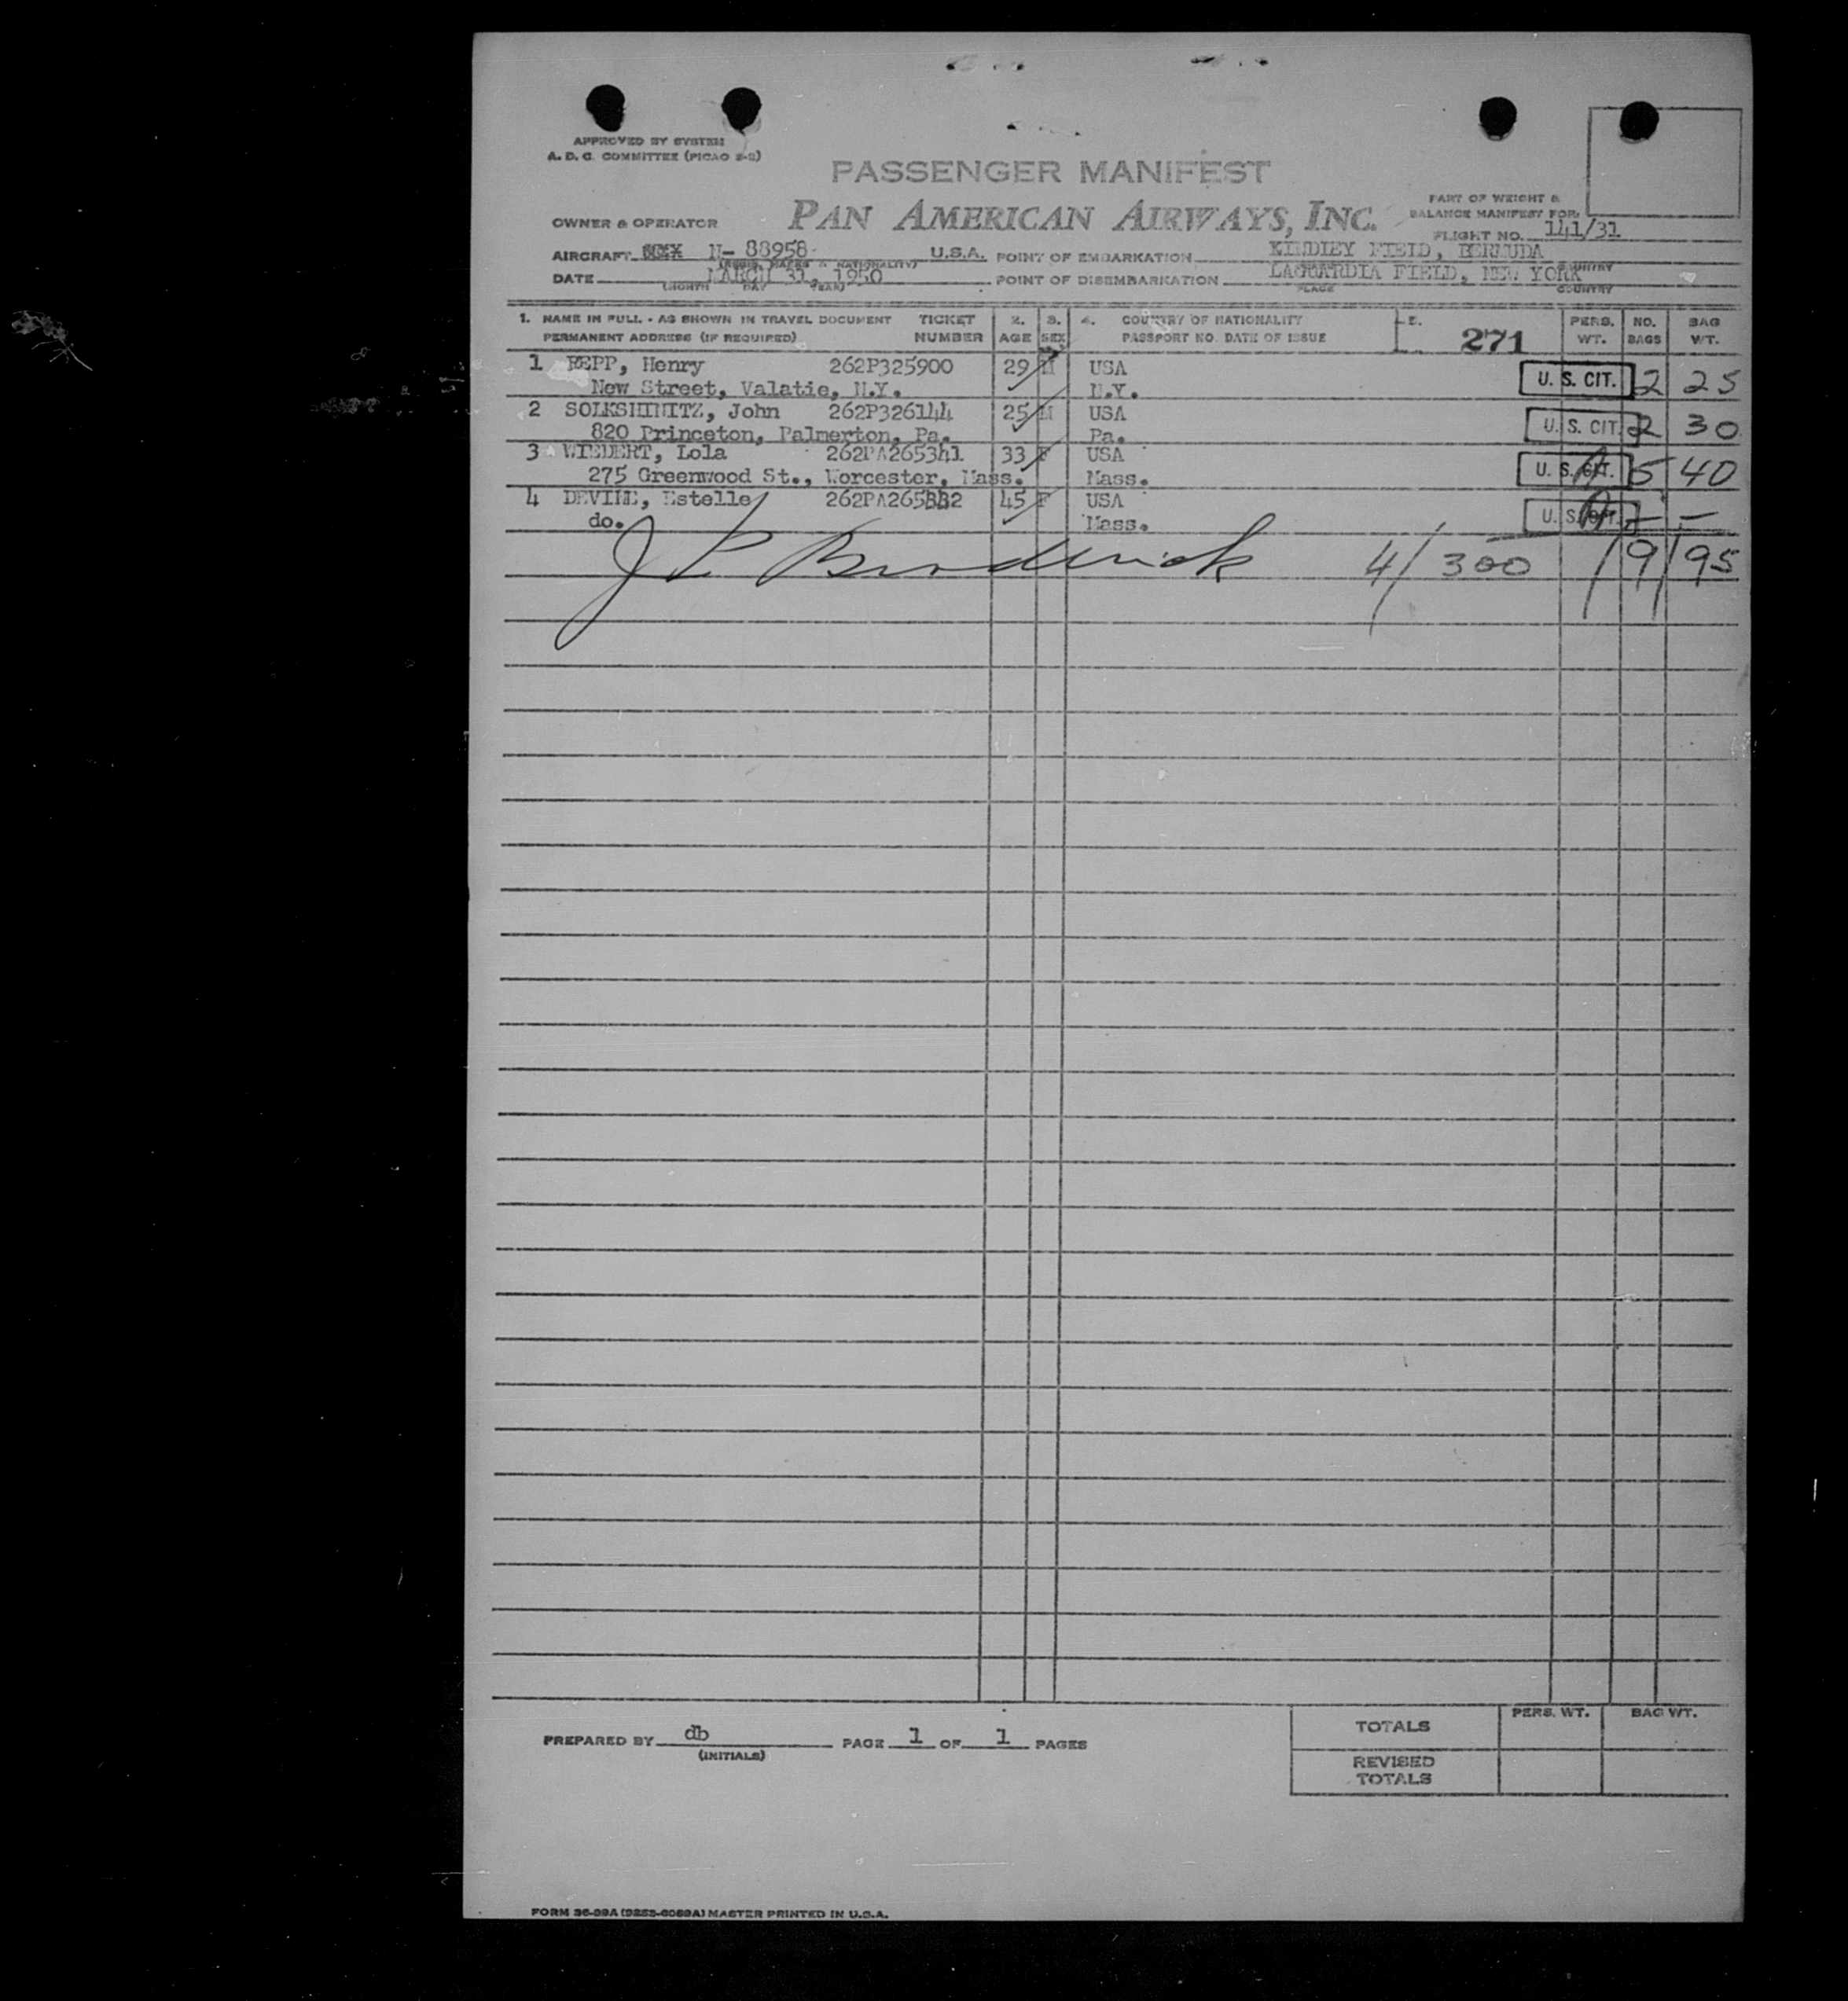 APPROVED BY SYSTEM
A. D. C. COMMITTEE (PICAO 2-2)
PASSENGER MANIFEST
PART OF WEIGHT &
OWNER & OPERATOR PAN AMERICAN AIRWAYS, INC. BALANCE MANIFEST FOR:
FLIGHT NO. 141/31
AIRCRAFT N- 88958 U.S.A. POINT OF EMBARKATION KINDLEY FIELD, BERMUDA
(REGIS. MARKS & NATIONALITY) COUNTRY
DATE MARCH 31, 1950 POINT OF DISEMBARKATION LAGUARDIA FIELD, NEW YORK
(MONTH DAY YEAR) PLACE COUNTRY
1. NAME IN FULL - AS SHOWN IN TRAVEL DOCUMENT TICKET 2. 3. 4. COUNTRY OF NATIONALITY 5. PERS. NO. BAG
PERMANENT ADDRESS (IF REQUIRED) NUMBER AGE SEX PASSPORT NO. DATE OF ISSUE 271 WT. BAGS WT.
1 REPP, Henry 262P325900 29 M USA U. S. CIT. 2 25
New Street, Valatie, N.Y. N.Y.
2 John 262P326144 25 M USA U. S. CIT. 2 30
820 Princeton, Palmerton, Pa. Pa.
3 WIEDERT, Lola 262PA265341 33 F USA U. S. CIT. 5 40
275 Greenwood St., Worcester, Mass. Mass.
4 DEVINE, Estelle 45 F USA U. S. CIT. - -
do. Mass.
J L Broderick 4/ 300 / 9/ 95
PREPARED BY db PAGE 1 OF 1 PAGES
(INITIALS)
PERS. WT. BAG WT.
TOTALS
REVISED
TOTALS
FORM 36-99A MASTER PRINTED IN U.S.A.